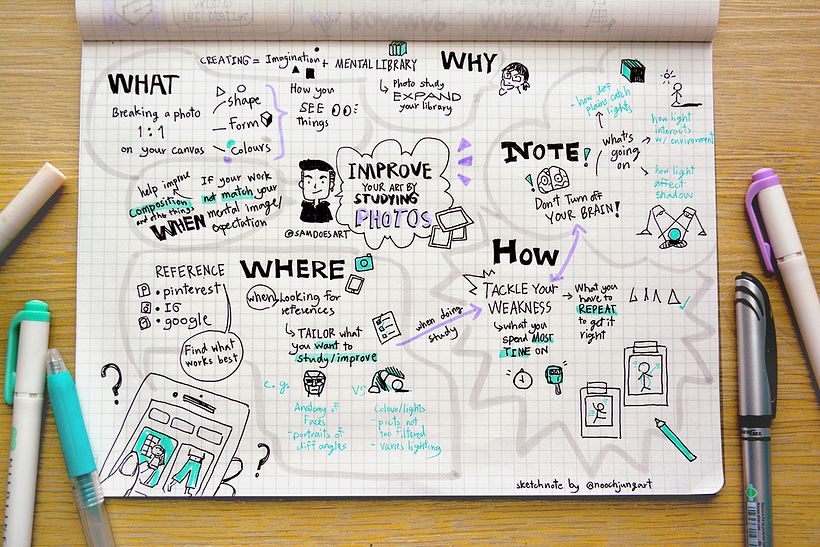 CREATING = Imagination + MENTAL LIBRARY
↳ Photo study
EXPAND
your library
WHAT
Breaking a photo
1:1
on your canvas
shape
Form
Colours
How you
SEE
things
WHY
NOTE!
Don't Turn off
YOUR BRAIN!
what's
going
on
- how diff
plains catch
lights
how light
interacts
w/ environment
how light
affect
shadow
help improve
composition
and other things
WHEN
IF your work
not match your
mental image/
expectation
@SAMDOESART
IMPROVE
YOUR ART BY
STUDYING
PHOTOS
WHERE
REFERENCE
• pinterest
• IG
• google
Find what
works best
when Looking for
references
↳ TAILOR what
you want to
study/improve
e.g.
Anatomy of
Faces
- portraits of
diff angles
VS
Colour/lights
- picts not
too filtered
- varies lighting
when doing
study
How
TACKLE YOUR
WEAKNESS
↳ what you
spend MOST
TIME ON
→ What you
have to
REPEAT
to get it
right
?
?
sketchnote by @noochjungart